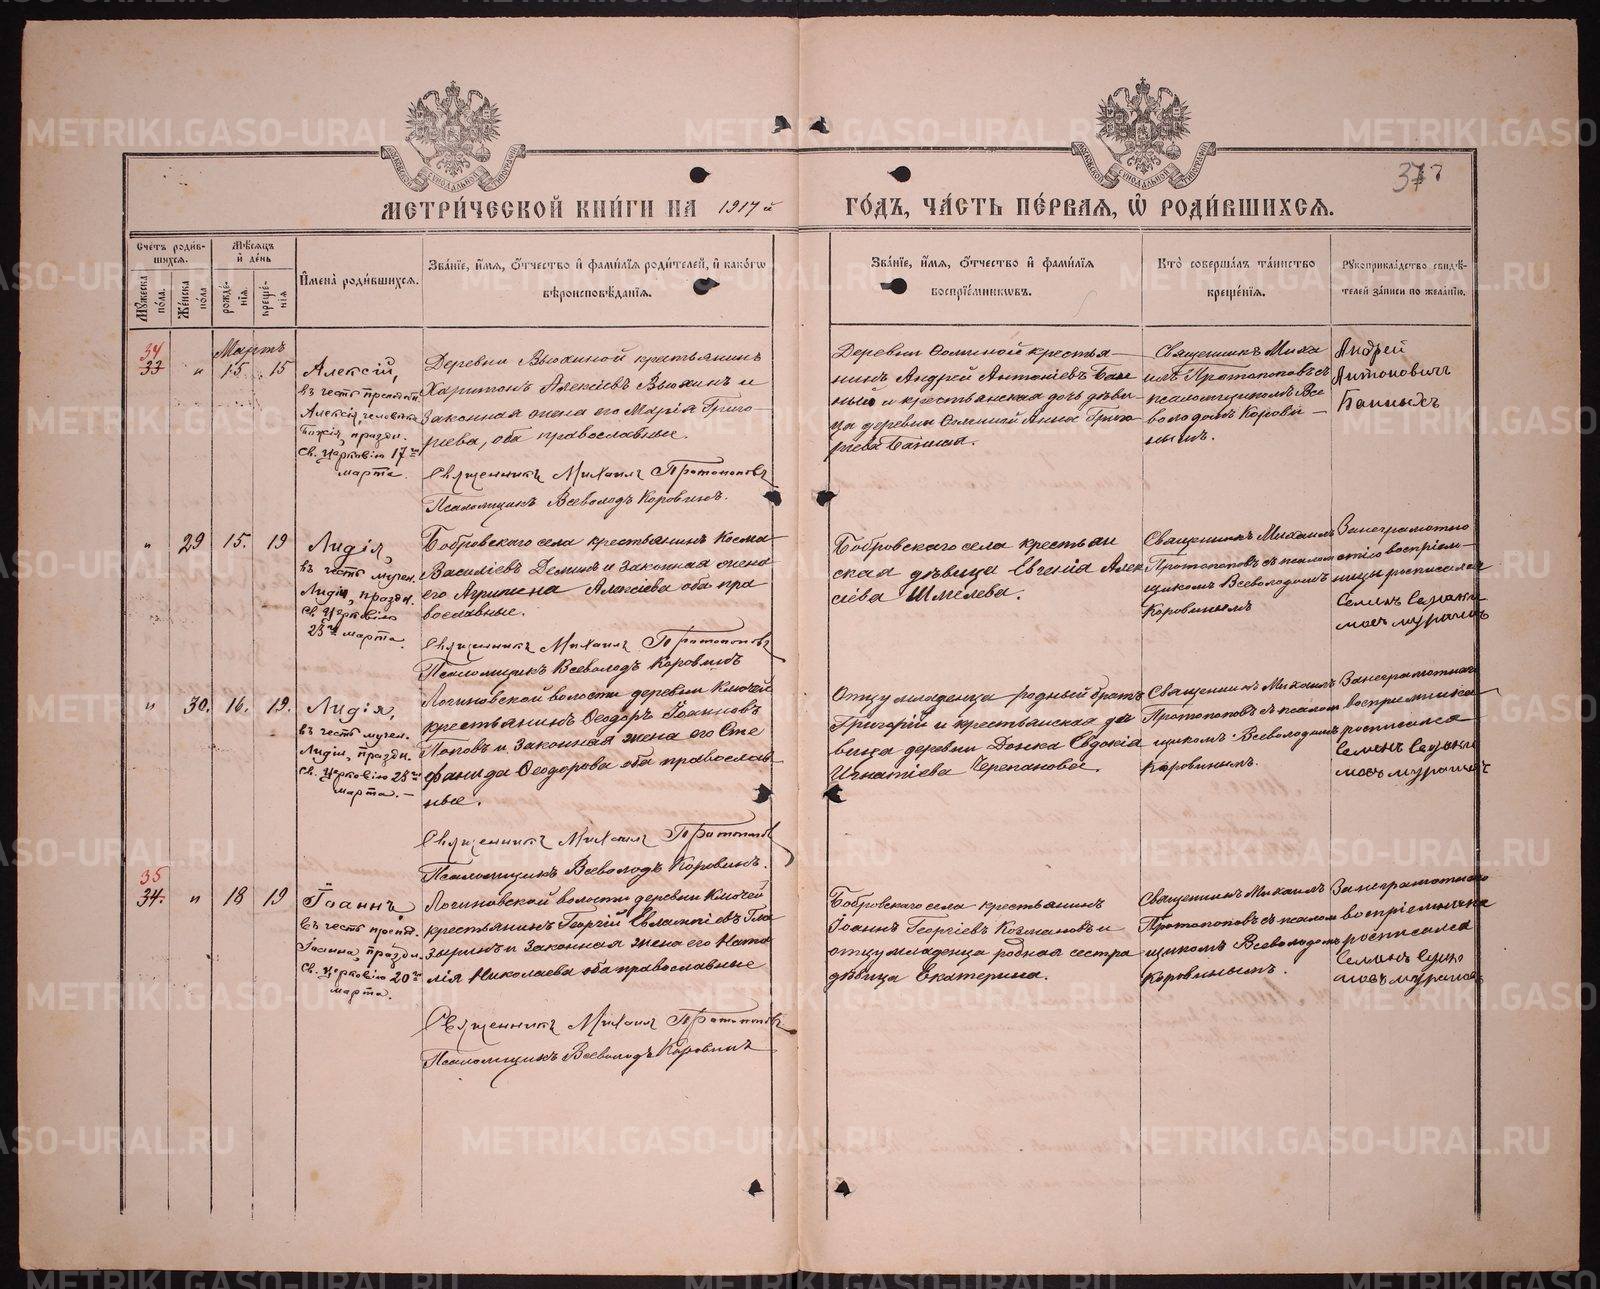 METRIKI.GASO-URAL.RU
377
МЕТРИ́ЧЕСКОЙ КНИ́ГИ НА 1917й ГО́ДЪ, ЧА́СТЬ ПЕ́РВАЯ, Ѡ҆ РОДИ́ВШИХСЯ.
Сче́тъ роди́в-
шихся.
Му́жеска по́ла.
Же́нска по́ла
Мѣ́сяцъ
и҆ де́нь
рожде́-
нїя.
креще́-
нїя
И҆мена̀ роди́вшихся.
Зва́нїе, и҆́мя, ѻ҆́тчество и҆ фами́лїя роди́телей, и҆ како́гѡ
вѣроисповѣ́данїя.
Зва́нїе, и҆́мя, ѻ҆́тчество и҆ фами́лїя
воспрїе́мникѡвъ.
Кто̀ соверша́лъ та́инство
креще́нїя.
Рꙋкоприкла́дство свидѣ́-
телей за́писи по жела́нїю.
34
33 " Мартъ
15 15
Алексій,
въ честь преподоб.
Алексія, человѣка
Божія, праздн.
Св. Церковію 17го
марта.
Деревни Вьюхиной крестьянинъ
Харитонъ Алексіевъ Вьюхинъ и
законная жена его Марія Григо-
рьева, оба православные.
Священникъ Михаилъ Протопоповъ
Псаломщикъ Всеволодъ Коровинъ.
Деревни крестья-
нинъ Андрей Антоніевъ
и крестьянская дочь дѣви-
ца деревни Анна Григо-
рьева
Священникъ Миха
илъ Протопоповъ съ
псаломщикомъ Все
володомъ Корови-
нымъ.
Андрей
Антоновичъ
" 29 15. 19
Лидія,
въ честь мучен.
Лидіи, праздн.
Св. Церковію
23го марта.
Бобровскаго села крестьянинъ Косма
Василіевъ Деминъ и законная жена
его Агрипина Алексіева оба пра
вославные.
Священникъ Михаилъ Протопоповъ
Псаломщикъ Всеволодъ Коровинъ
Бобровскаго села крестьян
ская дѣвица Евгенія Алек
сіева Шмелева.
Священникъ Михаилъ
Протопоповъ съ псалом
щикомъ Всеволодомъ
Коровинымъ
Занеграмотно
стію воспріем-
ницы росписался
Семенъ
" 30. 16. 19.
Лидія,
въ честь мучен.
Лидіи, праздн.
Св. Церковію 23го
марта.-
Логиновской волости деревни Ключей
крестьянинъ Ѳеодоръ Іоанновъ
Поповъ и законная жена его Сте
фанида Ѳеодорова оба православ
ные.
Священникъ Михаилъ Протопоповъ
Псаломщикъ Всеволодъ Коровинъ.
Отцу младенца родный братъ
Григорій и крестьянская дѣ
вица деревни Евдокія
Игнатіева Черепанова.
Священникъ Михаилъ
Протопоповъ съ псалом
щикомъ Всеволодомъ
Коровинымъ.
воспріемника
росписался
Семенъ
35
34. " 18 19
Іоаннъ,
въ честь препод.
Іоанна, праздн.
Св. Церковію 20го
марта.
Логиновской волости деревни Ключей
крестьянинъ Георгій Евлампіевъ Гла
зыринъ и законная жена его Ната
лія Николаева оба православные
Священникъ Михаилъ Протопоповъ
Псаломщикъ Всеволодъ Коровинъ
Бобровскаго села крестьянинъ
Іоаннъ Георгіевъ Козмановъ и
отцу младенца родная сестра
дѣвица Екатерина.
Священникъ Михаилъ
Протопоповъ съ псалом
щикомъ Всеволодомъ
Коровинымъ.
воспріемника
росписался
Семенъ